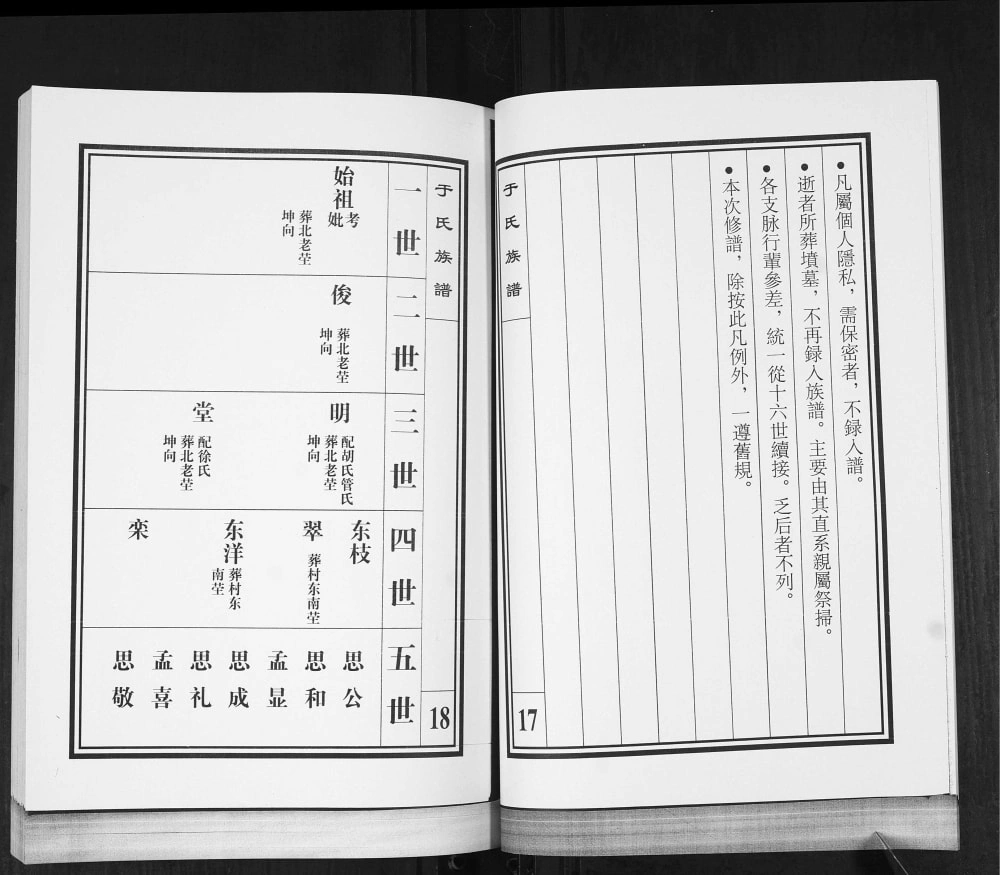 凡屬個人隱私，需保密者，不録入譜。
逝者所葬墳墓，不再録入族譜。主要由其直系親屬祭掃。
各支脉行輩參差，統一從十六世續接。乏后者不列。
本次修譜，除按此凡例外，一遵舊規。
于氏族譜
17
于氏族譜
18
一世
始祖
考
妣
葬北老茔
坤向
二世
俊
葬北老茔
坤向
三世
明
配胡氏管氏
葬北老茔
坤向
堂
配徐氏
葬北老茔
坤向
四世
东枝
翠
葬村东南茔
东洋
葬村东
南茔
栾
五世
思公
思和
孟显
思成
思礼
孟喜
思敬